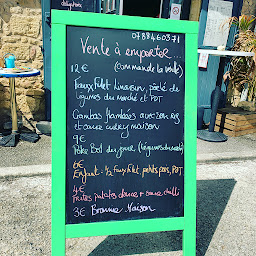 0788460371
Vente à emporter...
12€ (commande la veille)
Faux Filet Limousin, poêlé de
légumes du marché et PDT
Gambas flambées avec son riz
et sauce curry maison
9€
Poke Bowl du jour (légumes du marché)
6€
Enfant: 1/2 faux filet, petits pois, PDT
4€
Frites patates douces + sauce chili
3€ Brownie Maison